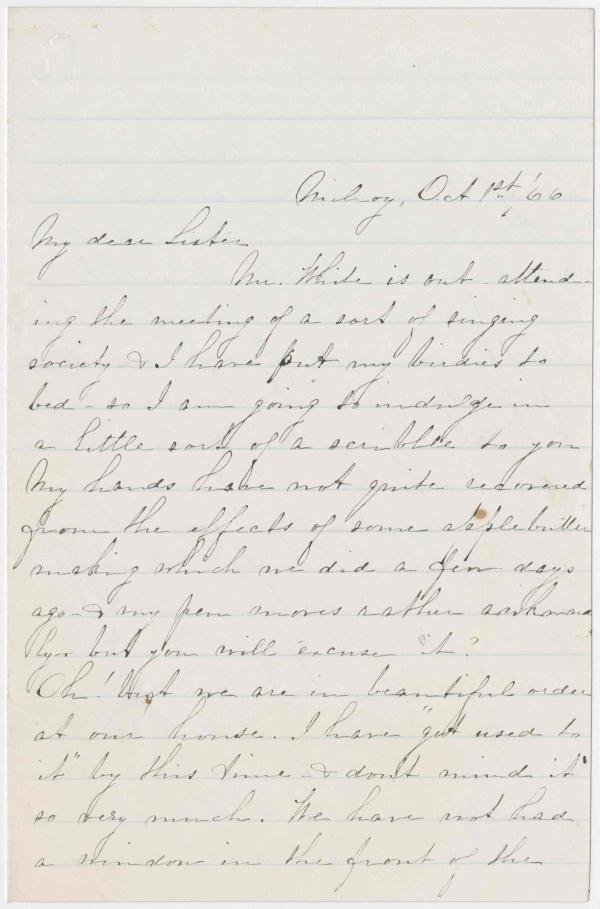 Milroy, Oct 1st, '66
My dear Sister
Mr. White is out attend-
ing the meeting of a sort of singing
society - & I have put my birdies to
bed - so I am going to indulge in
a little sort of a scribble to you
My hands have not quite recovered
from the effects of some applebutter
making which we did a few days
ago - & my pen moves rather awkward
ly - but you will excuse it?
Oh! but we are in beautiful order
at our house. I have "got used to
it" by this time - & don't mind it
so very much. We have not had
a window in the front of the